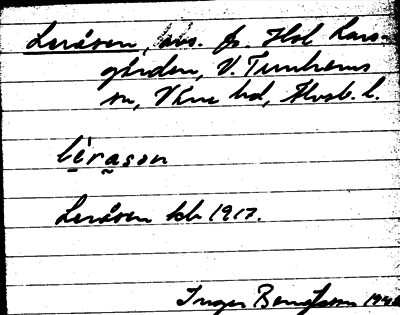 Leråsen, avs. fr. Hsl Lars-
gården, V. Tunhems
sn, Väne hd, Älvsb. l.
lèrasən
Leråsen kb 1917.
Inger Bengtsson